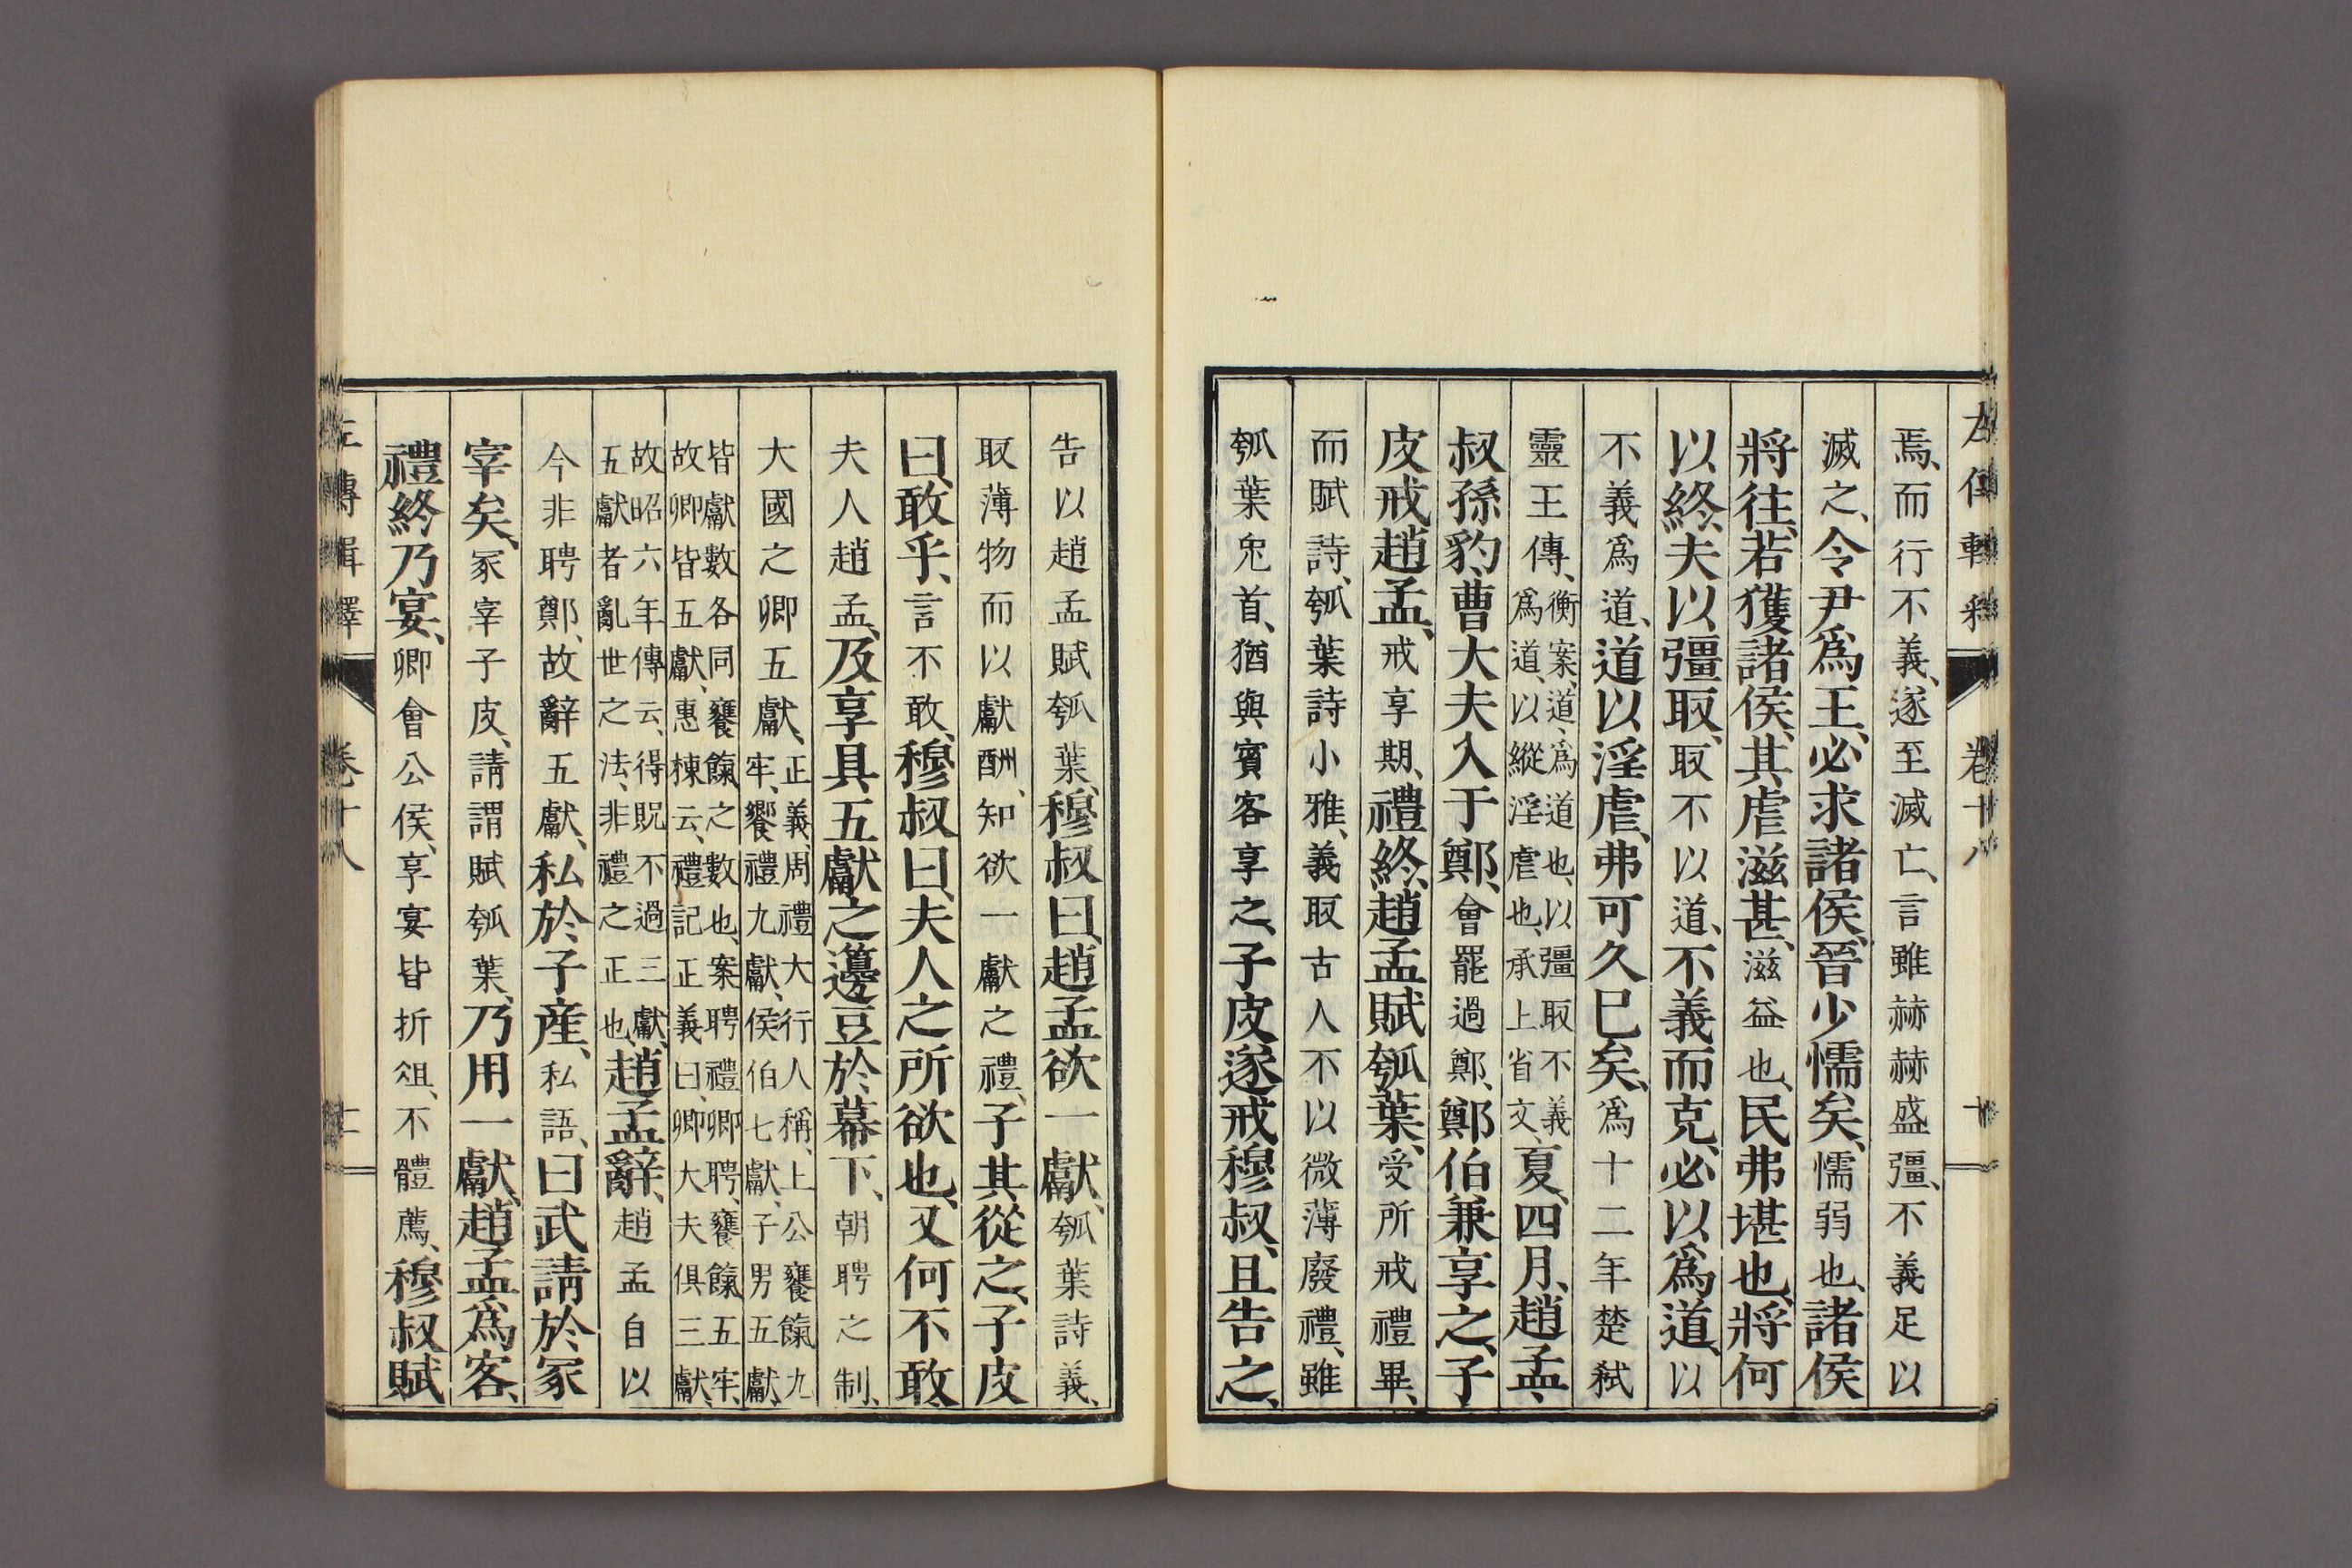 左傳輯釋 卷十八 十
焉、而行不義、遂至滅亡、言雖赫赫盛彊、不義足以
滅之、令尹爲王、必求諸侯、晉少懦矣、懦弱也、諸侯
將往、若獲諸侯、其虐滋甚、滋益也、民弗堪也、將何
以終、夫以彊取、取不以道、不義而克、必以爲道、以
不義爲道、道以淫虐、弗可久已矣、爲十二年楚弒
靈王傳、衡案、道、爲道也、以彊取不義爲道、以縱淫虐也、承上省文、夏、四月、趙孟、
叔孫豹、曹大夫入于鄭、會罷過鄭、鄭伯兼享之、子
皮戒趙孟、戒享期、禮終、趙孟賦瓠葉、受所戒禮畢、
而賦詩、瓠葉詩小雅、義取古人不以微薄廢禮、雖
瓠葉兔首、猶與賓客享之、子皮遂戒穆叔、且告之、
告以趙孟賦瓠葉、穆叔曰、趙孟欲一獻、瓠葉詩義、
取薄物而以獻酬、知欲一獻之禮、子其從之、子皮
曰、敢乎、言不敢、穆叔曰、夫人之所欲也、又何不敢、
夫人趙孟、及享具、五獻之籩豆於幕下、朝聘之制、
大國之卿五獻、正義、周禮大行人稱、上公饔餼九牢、饗禮九獻、侯伯七獻、子男五獻、
皆獻數各同饔餼之數也、案聘禮卿聘、饔餼五牢、故卿皆五獻、惠棟云、禮記正義曰、卿大夫俱三獻、
故昭六年傳云、得貺不過三獻、五獻者亂世之法、非禮之正也、趙孟辭、趙孟自以
今非聘鄭、故辭五獻、私於子產、私語、曰武請於冢
宰矣、冢宰子皮、請謂賦瓠葉、乃用一獻、趙孟爲客、
禮終乃宴、卿會公侯、享宴皆折俎、不體薦、穆叔賦
左傳輯釋 卷十八